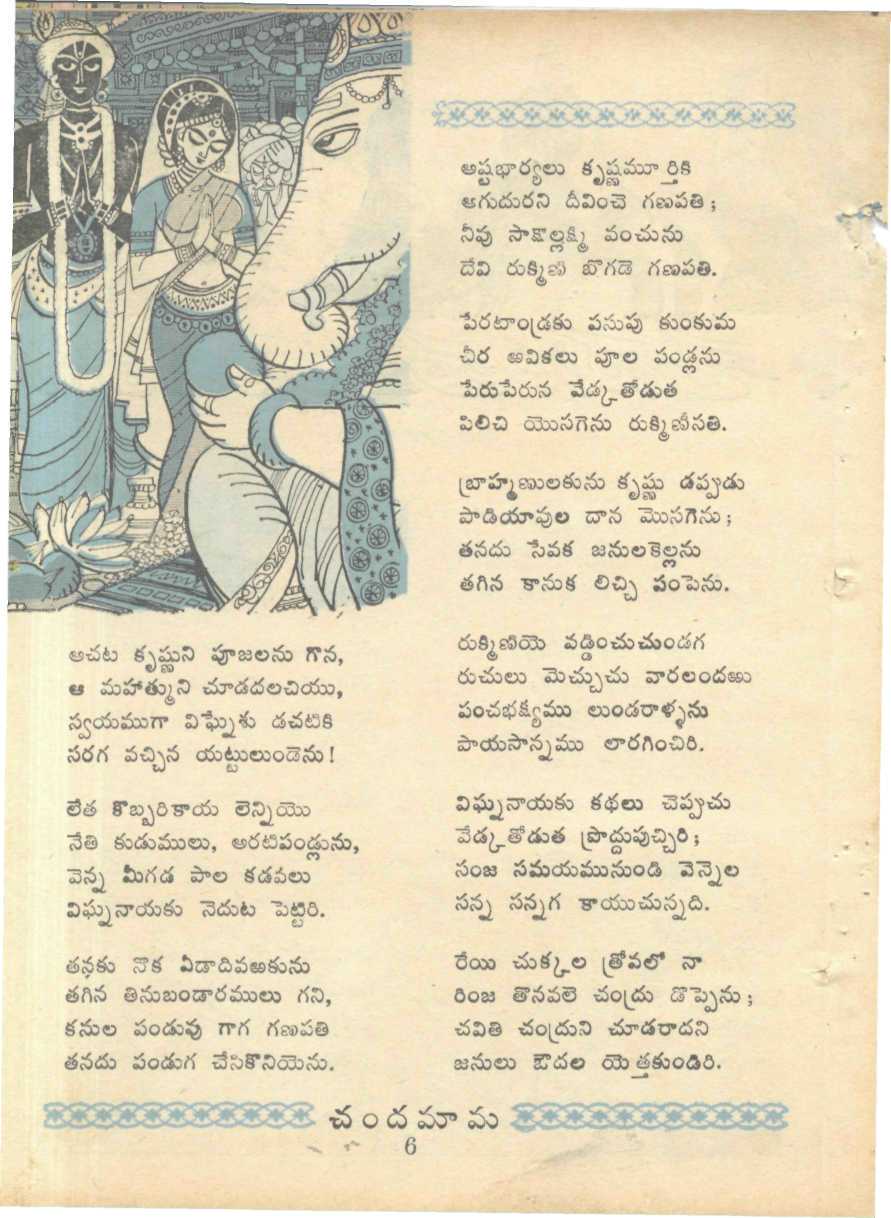 అచట కృష్ణుని పూజలను గొన,
ఆ మహాత్ముని చూడదలచియు,
స్వయముగా విఘ్నేశు డచటికి
సరగ వచ్చిన యట్టులుండెను!
లేత కొబ్బరికాయ లెన్నియొ
నేతి కుడుములు, అరటిపండ్లును,
వెన్న మీగడ పాల కడవలు
విఘ్ననాయకు నెదుట పెట్టిరి.
తనకు నొక ఏడాదివఱకును
తగిన తినుబండారములు గని,
కనుల పండువు గాగ గణపతి
తనదు పండుగ చేసికొనియెను.
అష్టభార్యలు కృష్ణమూర్తికి
ఆగుదురని దీవించె గణపతి;
నీవు సాక్షాల్లక్ష్మి వంచును
దేవి రుక్మిణి బొగడె గణపతి.
పేరటాండ్రకు పసుపు కుంకుమ
చీర ఱవికలు పూల పండ్లను
పేరుపేరున వేడ్కతోడుత
పిలిచి యొసగెను రుక్మిణీసతి.
బ్రాహ్మణులకును కృష్ణు డప్పుడు
పాడియావుల దాన మొసగెను;
తనదు సేవక జనులకెల్లను
తగిన కానుక లిచ్చి పంపెను.
రుక్మిణియె వడ్డించుచుండగ
రుచులు మెచ్చుచు వారలందఱు
పంచభక్ష్యము లుండరాళ్ళను
పాయసాన్నము లారగించిరి.
విఘ్ననాయకు కథలు చెప్పుచు
వేడ్కతోడుత ప్రొద్దుపుచ్చిరి;
సంజ సమయమునుండి వెన్నెల
సన్న సన్నగ కాయుచున్నది.
రేయి చుక్కల త్రోవలో నా
రింజ తొనవలె చంద్రు డొప్పెను;
చవితి చంద్రుని చూడరాదని
జనులు ఔదల యెత్తకుండిరి.
చందమామ
6